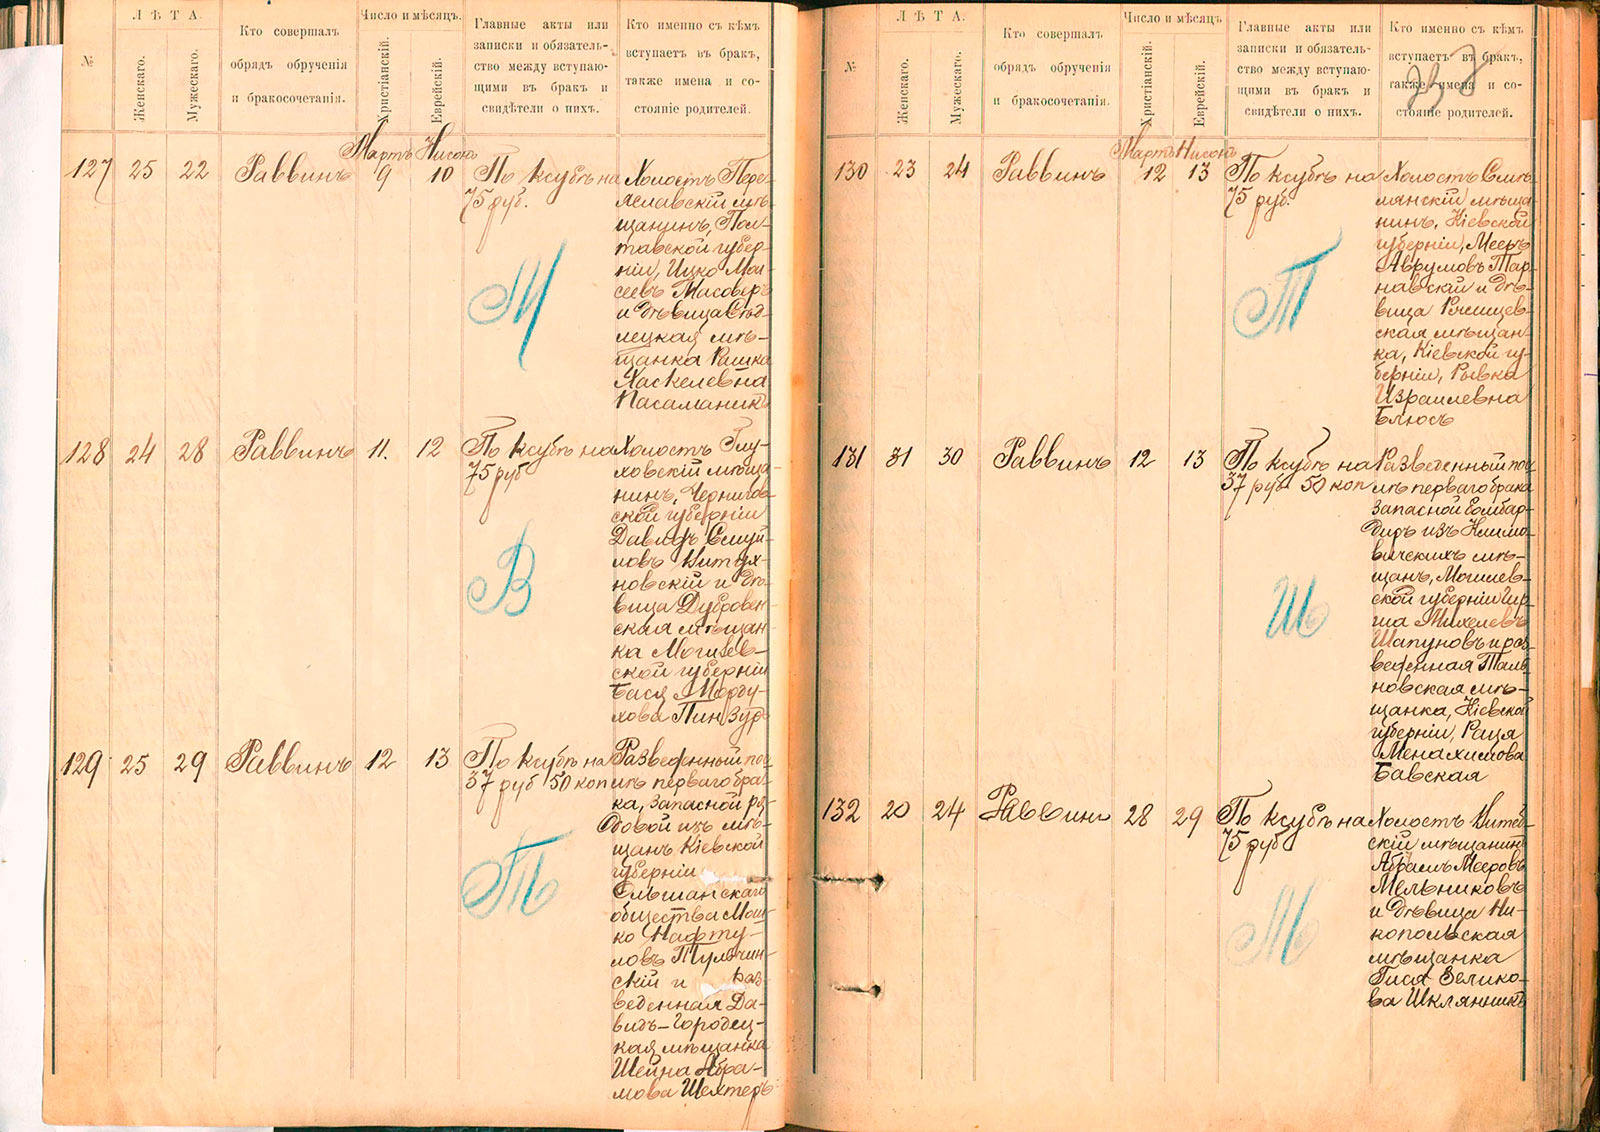 №
ЛѢТА.
Женскаго.
Мужескаго.
Кто совершалъ
обрядъ обрученія
и бракосочетанія.
Число и мѣсяцъ.
Христіанскій.
Еврейскій.
Главные акты или
записки и обязатель-
ство между вступаю-
щими въ бракъ и
свидѣтели о нихъ.
Кто именно съ кѣмъ
вступаетъ въ бракъ,
также имена и со-
стояніе родителей.
Мартъ Нисонъ
127 25 22 Раввинъ 9 10 По ксубѣ на
75 руб.
М
Холостъ Пере-
яславскій мѣ-
щанинъ, Пол-
тавской губер-
ніи, Ицко Мои-
сеевъ Масоверъ
и дѣвица Сѣд-
лецкая мѣ-
щанка Рашка
Хаскелевна
Пасаманикъ
128 24 28 Раввинъ 11. 12 По ксубѣ на
75 руб
В
Холостъ Глу-
ховскій мѣща-
нинъ, Чернигов-
ской губерніи
Давидъ Смуй-
ловъ Витух-
новскій и дѣ-
вица Дубровен-
ская мѣщан-
ка Могилев-
ской губерніи
Бася Морду-
хова Пинзуръ
129 25 29 Раввинъ 12 13 По ксубѣ на
37 руб 50 коп
Т
Разведенный по-
слѣ перваго бра-
ка, запасной ря-
довой изъ мѣ-
щанъ Кіевской
губерніи
Ольшанскаго
общества Мош-
ко Нафту-
ловъ Тульчин-
скій и раз-
веденная Да-
видъ-Городец-
кая мѣщанка
Шейна Абра-
мова Шехтеръ
№
ЛѢТА.
Женскаго.
Мужескаго.
Кто совершалъ
обрядъ обрученія
и бракосочетанія.
Число и мѣсяцъ
Христіанскій.
Еврейскій.
Главные акты или
записки и обязатель-
ство между вступаю-
щими въ бракъ и
свидѣтели о нихъ.
Кто именно съ кѣмъ
вступаетъ въ бракъ,
также имена и со-
стояніе родителей.
Мартъ Нисонъ
130 23 24 Раввинъ 12 13 По ксубѣ на
75 руб.
Т
Холостъ Смѣ-
лянскій мѣща-
нинъ, Кіевской
губерніи, Мееръ
Аврумовъ Тар-
навскій и дѣ-
вица Ржищев-
ская мѣщан-
ка, Кіевской гу-
берніи, Рывка
Израилевна
Блюсъ
131 31 30 Раввинъ 12 13 По ксубѣ на
37 руб 50 коп
Ш
Разведенный пос-
лѣ перваго брака
запасной бомбар-
диръ изъ Климо-
вичскихъ мѣ-
щанъ, Могилев-
ской губерніи Гир-
ша Михелевъ
Шапуновъ и раз-
веденная Таль-
новская мѣ-
щанка, Кіевской
губерніи, Рація
Менахимова
Бавская
132 20 24 Раввинъ 28 29 По ксубѣ на
75 руб
М
Холостъ Витеб-
скій мѣщанинъ
Абрамъ Мееровъ
Мельниковъ
и дѣвица Ни-
копольская
мѣщанка
Гися Зелико-
ва Шклянникъ